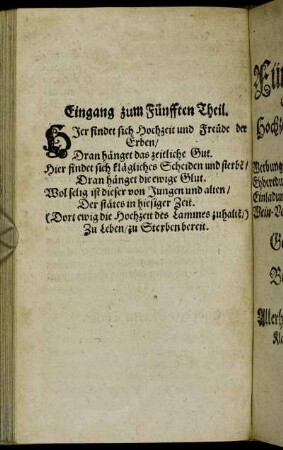 Eingang zum Fünfften Theil.
HJer findet sich Hochzeit und Freüde der
Erben/
Dran hänget das zeitliche Gut.
Hier findet sich klägliches Scheiden und sterbẽ/
Dran hänget die ewige Glut.
Wol selig ist dieser von Jungen und alten/
Der stätes in hiesiger Zeit.
(Dort ewig die Hochzeit des Lammes zuhaltẽ/)
Zu Leben/zu Sterben bereit.
Fün
Hochz
Werbung
Einladun
Wein-Ve
Ge
Allerh